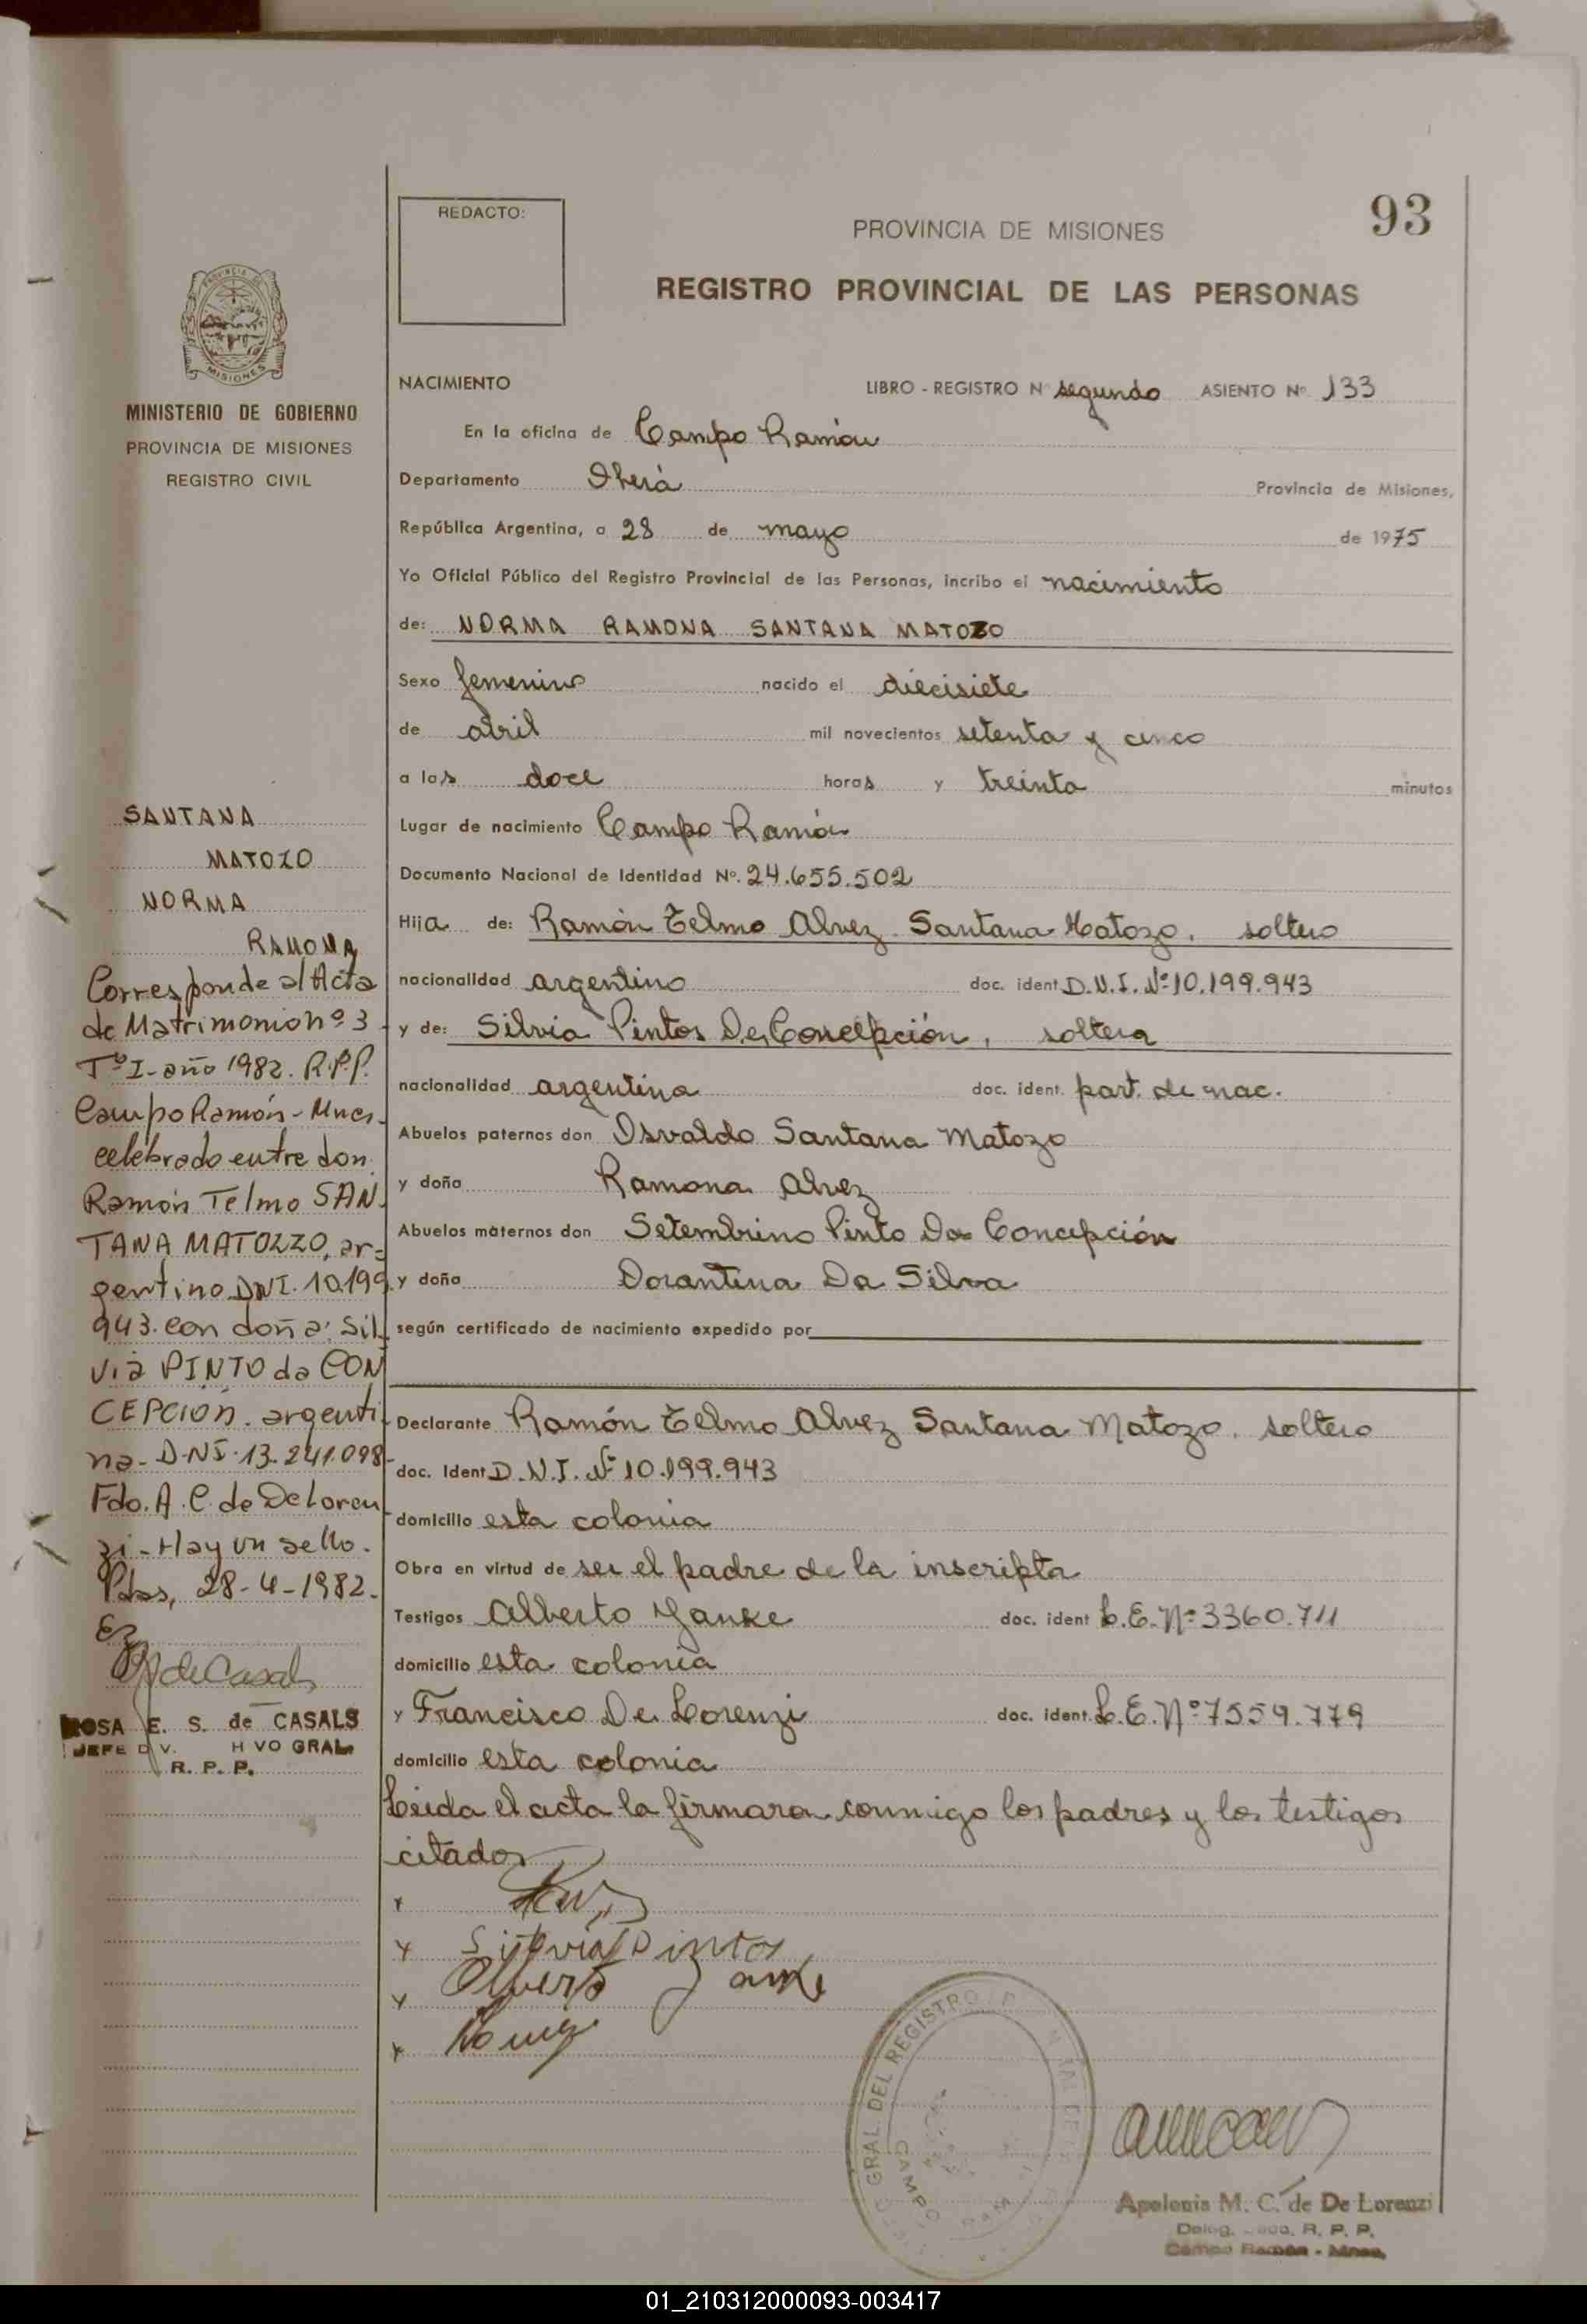 REDACTO:
PROVINCIA DE MISIONES
93
REGISTRO PROVINCIAL DE LAS PERSONAS
MISIONES
MINISTERIO DE GOBIERNO
PROVINCIA DE MISIONES
REGISTRO CIVIL
NACIMIENTO LIBRO - REGISTRO Nº segundo ASIENTO Nº 133
En la oficina de Campo Ramón
Departamento Oberá Provincia de Misiones,
República Argentina, a 28 de mayo de 1975
Yo Oficial Público del Registro Provincial de las Personas, incribo el nacimiento
de: NORMA RAMONA SANTANA MATOZO
Sexo femenino nacido el diecisiete
de abril mil novecientos setenta y cinco
a las doce horas y treinta minutos
Lugar de nacimiento Campo Ramón
Documento Nacional de Identidad Nº. 24.655.502
Hija de: Ramón Telmo Alvez Santana Matozo, soltero
nacionalidad argentino doc. ident D.N.I. Nº 10.199.943
y de: Silvia Pintos De Concepción, soltera
nacionalidad argentina doc. ident. part. de nac.
Abuelos paternos don Osvaldo Santana Matozo
y doña Ramona Alvez
Abuelos maternos don Setembrino Pinto Da Concepción
y doña Dorantina Da Silva
según certificado de nacimiento expedido por
Declarante Ramón Telmo Alvez Santana Matozo, soltero
doc. Ident D.N.I. Nº 10.199.943
domicilio esta colonia
Obra en virtud de ser el padre de la inscripta
Testigos Alberto Yanke doc. ident L.E. Nº 3360.711
domicilio esta colonia
y Francisco De Lorenzi doc. ident. L.E. Nº 7559.779
domicilio esta colonia
Leida el acta la firmaron conmigo los padres y los testigos
citados
Silvia Pintos
Alberto Yanke
SANTANA
MATOZO
NORMA
RAMONA
Corresponde al Acta
de Matrimonio nº 3
Tº I-año 1982. R.P.P.
Campo Ramón - Mnes.
celebrado entre don
Ramón Telmo SAN
TANA MATOZZO, ar=
gentino DNI. 10.199
943. con doña: Sil
via PINTO da CON
CEPCIÓN. argenti
na - D.NI. 13.241.098
Fdo. A. C. de DeLoren
zi - Hay un sello.
Pdas, 28-4-1982.
ROSA E. S. de CASALS
JEFE DIV. GRAL.
R. P. P.
GRAL DEL REGISTRO
CAMPO RAM
Apolonia M. C. de De Lorenzi
R. P. P.
Campo Ramón - Mnes.
01_210312000093-003417